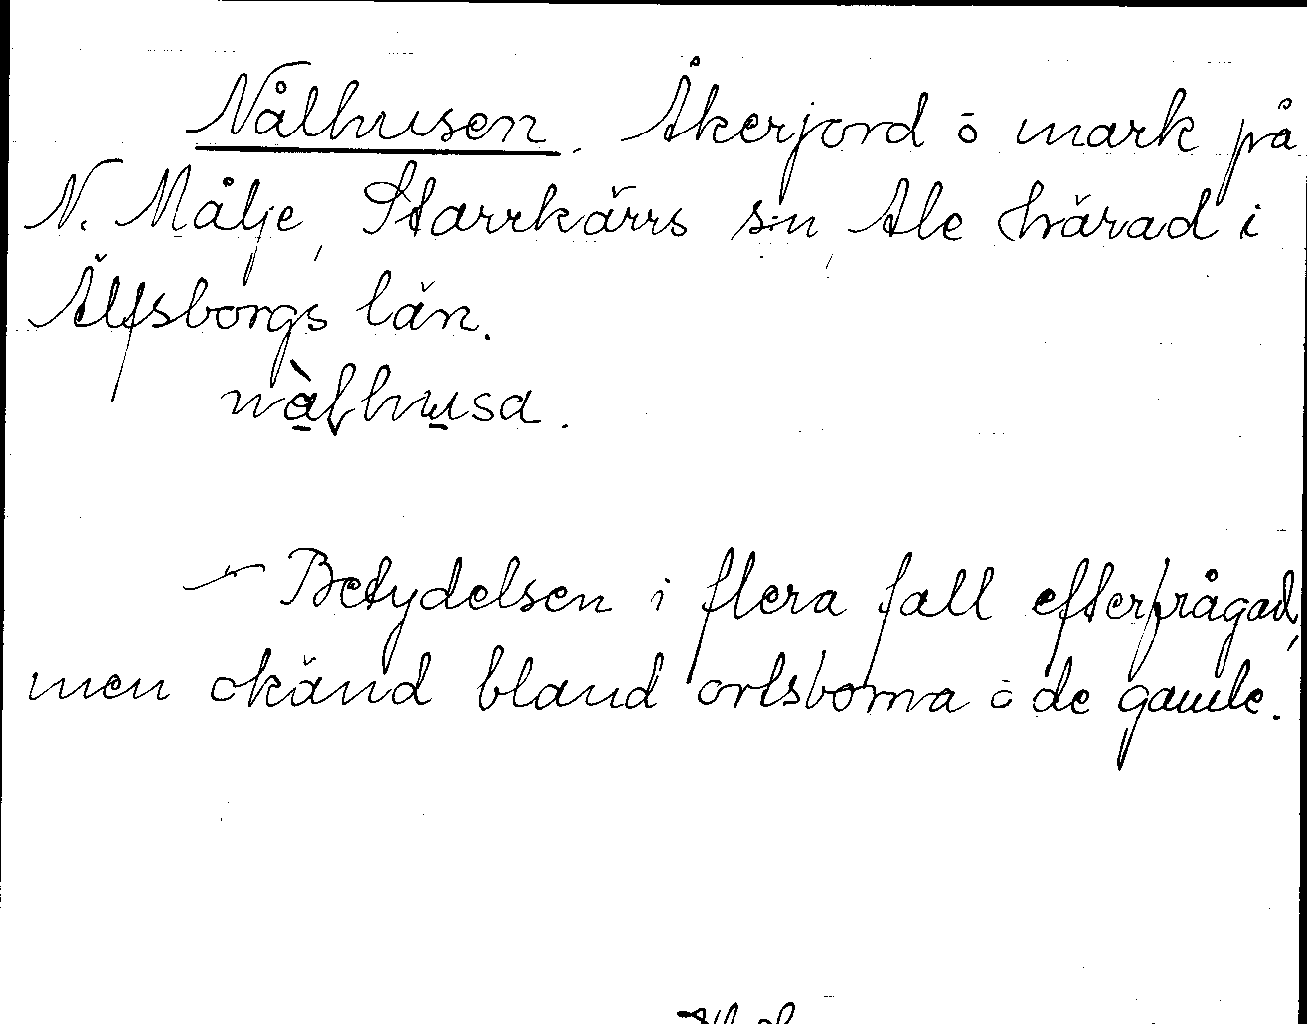 Nålhusen. Åkerjord ō mark på
N. Målje, Starrkärrs s:n, Ale härad i
Älfsborgs län.
nàlhusa.
– Betydelsen i flera fall efterfrågad,
men okänd bland ortsborna ō de gamle.